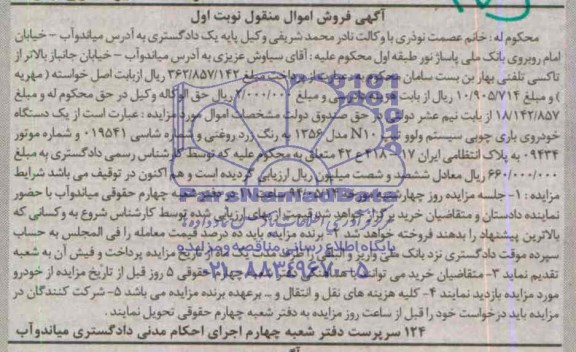 آگهی فروش اموال منقول نوبت اول
محکوم له : خانم عصمت نوذری با وکالت نادر محمد شریفی وکیل پایه یک دادگستری به آدرس میاندوآب - خیابان
امام روبروی بانک ملی پاساژ نور طبقه اول محکوم علیه : آقای سیاوش عزیزی به آدرس میاندوآب - خیابان جانباز بالاتر از
تاکسی تلفنی بهار بن بست سامان محکوم به ۳۶۲/۸۵۷/۱۴۲ ریال از بابت اصل خواسته ( مهریه
) و مبلغ ۱۰/۹۰۵/۷۱۴ ریال از بابت و مبلغ ۲/۰۰۰/۰۰۰ ریال حق الوکاله وکیل در حق محکوم له و مبلغ
۱۸/۱۴۲/۸۵۷ از بابت نیم عشر دولتی در حق صندوق دولت مشخصات اموال مورد مزایده : عبارت است از یک دستگاه
خودروی باری چوبی سیستم ولوو تیپ N10 مدل ۱۳۵۶ به رنگ زرد روغنی و شماره شاسی ۰۱۹۵۴۱ و شماره موتور
۰۹۴۳۴ به پلاک انتظامی ایران ۱۷ - ۴۱۸ ع ۴۲ متعلق به محکوم علیه که توسط کارشناس رسمی دادگستری به مبلغ
۶۶۰/۰۰۰/۰۰۰ ریال معادل ششصد و شصت میلیون ریال ارزیابی گردیده است و هم اکنون در توقیف می باشد شرایط
مزایده : ۱- جلسه مزایده روز چهارشنبه دفتر شعبه چهارم حقوقی میاندوآب با حضور
نماینده دادستان و متقاضیان خرید برگزار خواهد شد قیمت از بهای ارزیابی شده توسط کارشناس شروع به و کسانی که
بالاترین پیشنهاد را بدهند فروخته خواهد شد ۲- برنده مزایده باید ده درصد قیمت معامله را فی المجلس به حساب
سپرده موقت دادگستری نزد بانک ملی واریز و الباقی را ظرف مدت یک ماه از تاریخ مزایده پرداخت و فیش آن به شعبه
تقدیم نماید ۳- متقاضیان خرید می توانند با هماهنگی شعبه چهارم حقوقی ۵ روز قبل از تاریخ مزایده از خودرو
مورد مزایده بازدید نمایند ۴- کلیه هزینه های نقل و انتقال و .. برعهده برنده مزایده می باشد ۵- شرکت کنندگان در
مزایده باید درخواست خود را قبل از ساعت روز مزایده به دفتر شعبه چهارم حقوقی تحویل نمایند.
۱۲۴ سرپرست دفتر شعبه چهارم اجرای احکام مدنی دادگستری میاندوآب
ParsNamadData
پایگاه اطلاع رسانی مناقصه و مزایده
۰۲۱-۸۸۳۴۹۶۷۰-۵